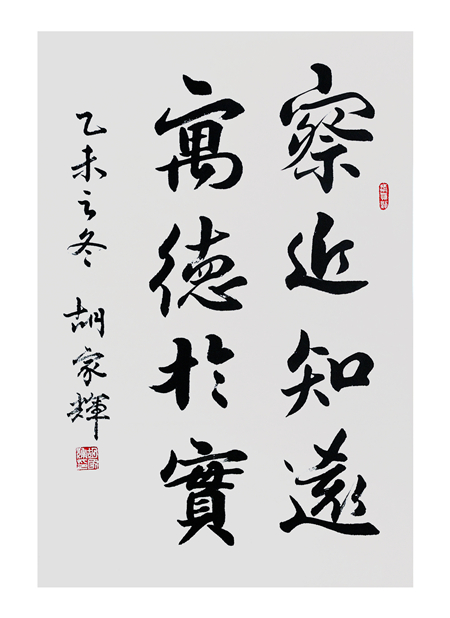 察近知遠
寓德於實
乙未之冬 胡家輝